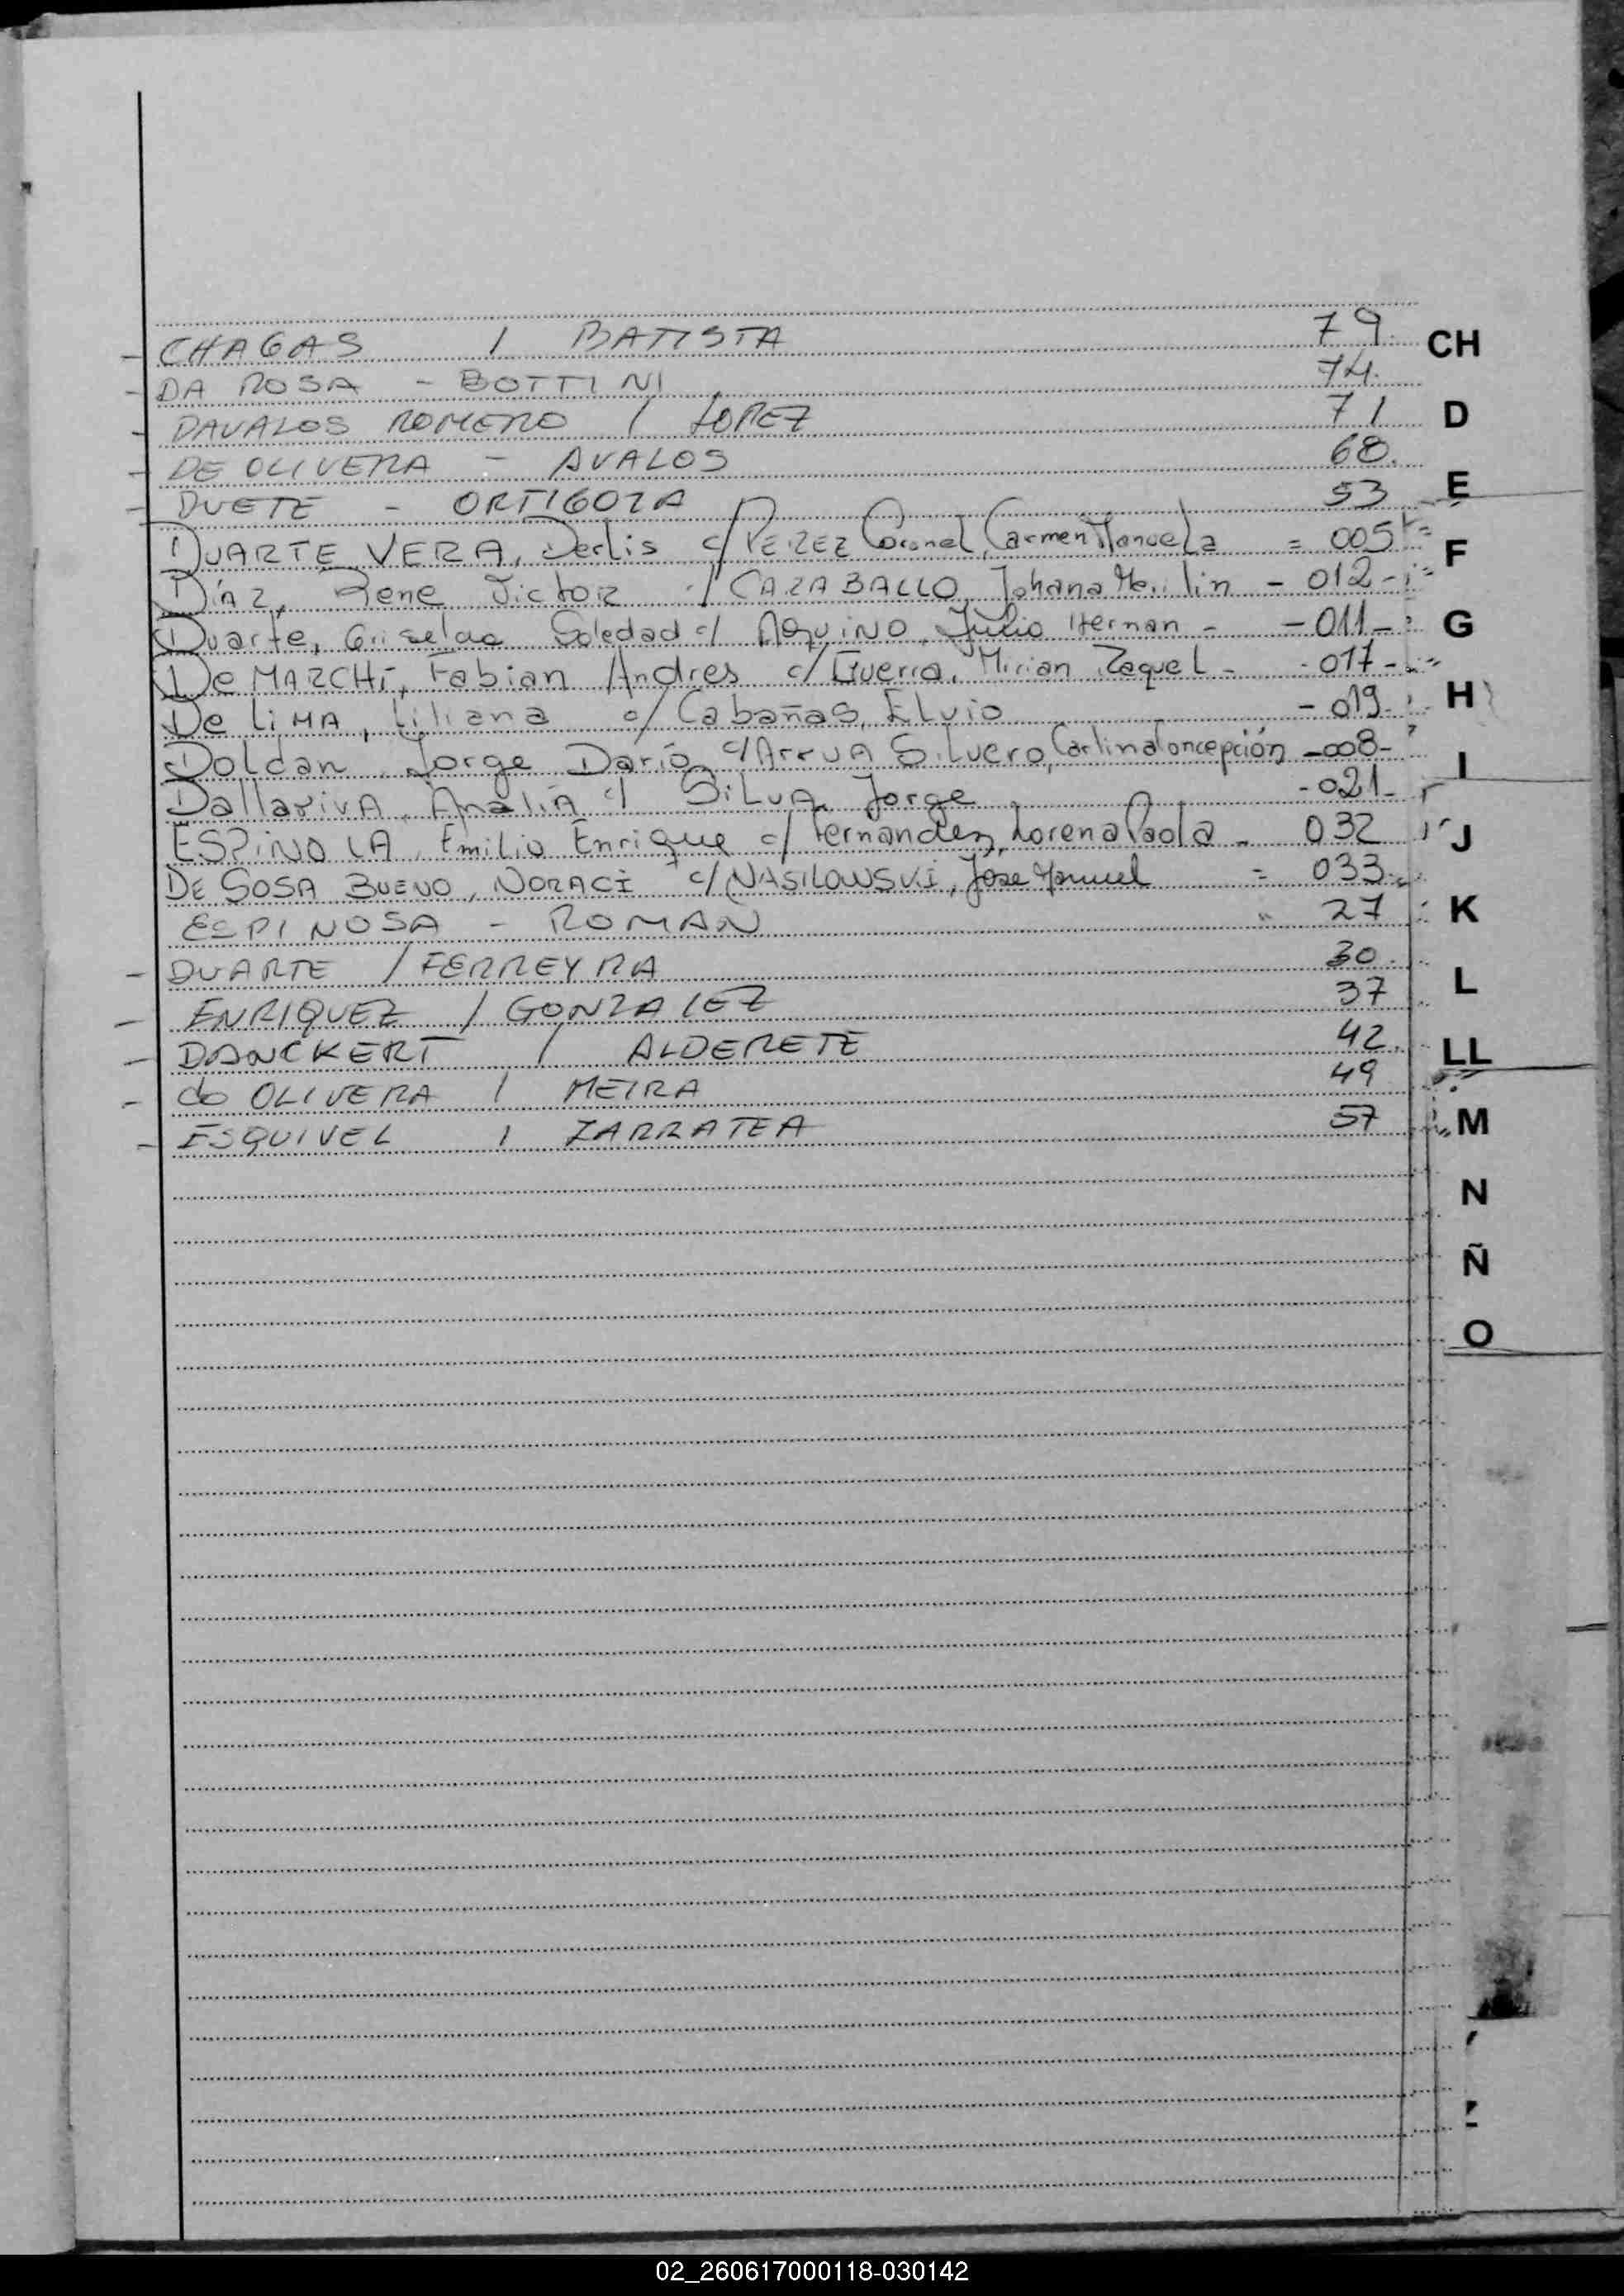 - CHAGAS / BATISTA 79.
- DA ROSA - BOTTINI 74.
- DAVALOS ROMERO / LOPEZ 71
- DE OLIVERA - AVALOS 68.
- DUETE - ORTIGOZA 53
DUARTE VERA, Derlis c/ PEREZ Coronel, Carmen Manuela = 005
Díaz, Rene Victor c/ CARABALLO, Johana Merilin - 012 -
Duarte, Griselda Soledad c/ AQUINO, Julio Hernan - - 011 -
De MARCHi, Fabian Andres c/ Guerra, Mirian Raquel - - 017 -
De LiMA, Liliana c/ Cabañas, Elvio - 019 -
Doldan, Jorge Darío c/ Arrua Silvero, Carlina Concepción - 008 -
Dallariva, Analia c/ SiLVA, Jorge - 021 -
ESPINOLA, Emilio Enrique c/ Fernandez, Lorena Paola - 032
DE SOSA BUENO, NORACI c/ NASILOWSKI, Jose Manuel = 033
ESPINOSA - ROMAN 27
- DUARTE / FERREYRA 30.
- ENRIQUEZ / GONZALEZ 37
- DANCKERT / ALDERETE 42.
- do OLIVERA / MEIRA 49
- ESQUIVEL / ZARRATEA 57
CH
D
E
F
G
H
I
J
K
L
LL
M
N
Ñ
O
02_260617000118-030142